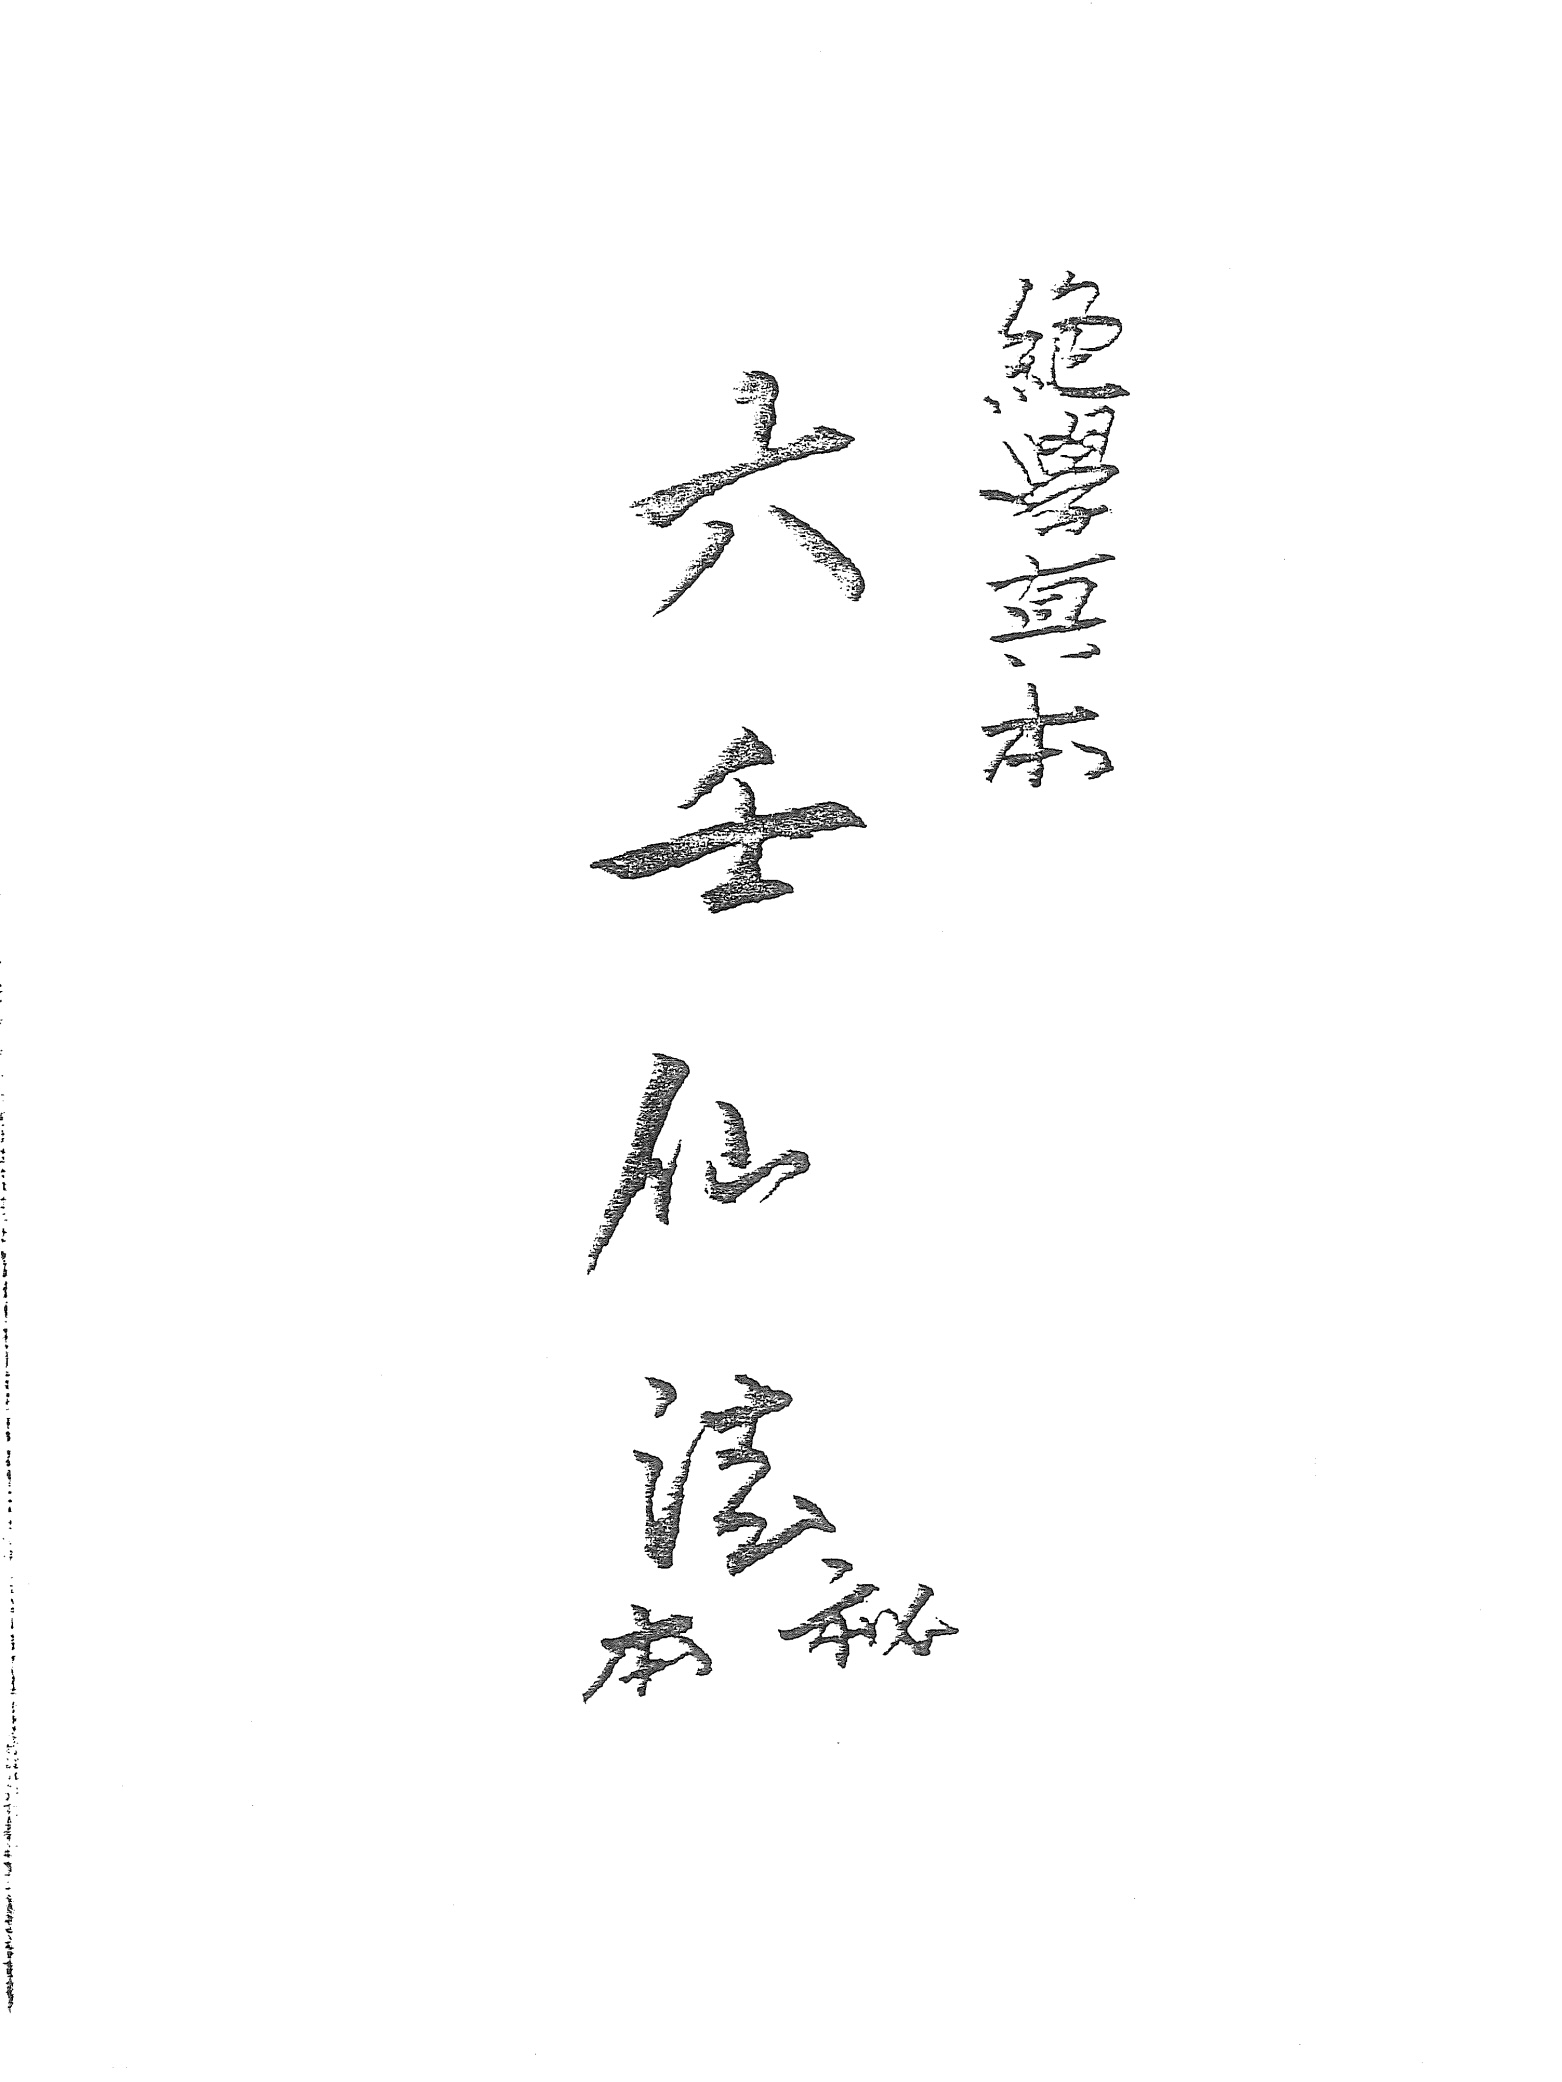 絕學真本
六壬仙法秘本